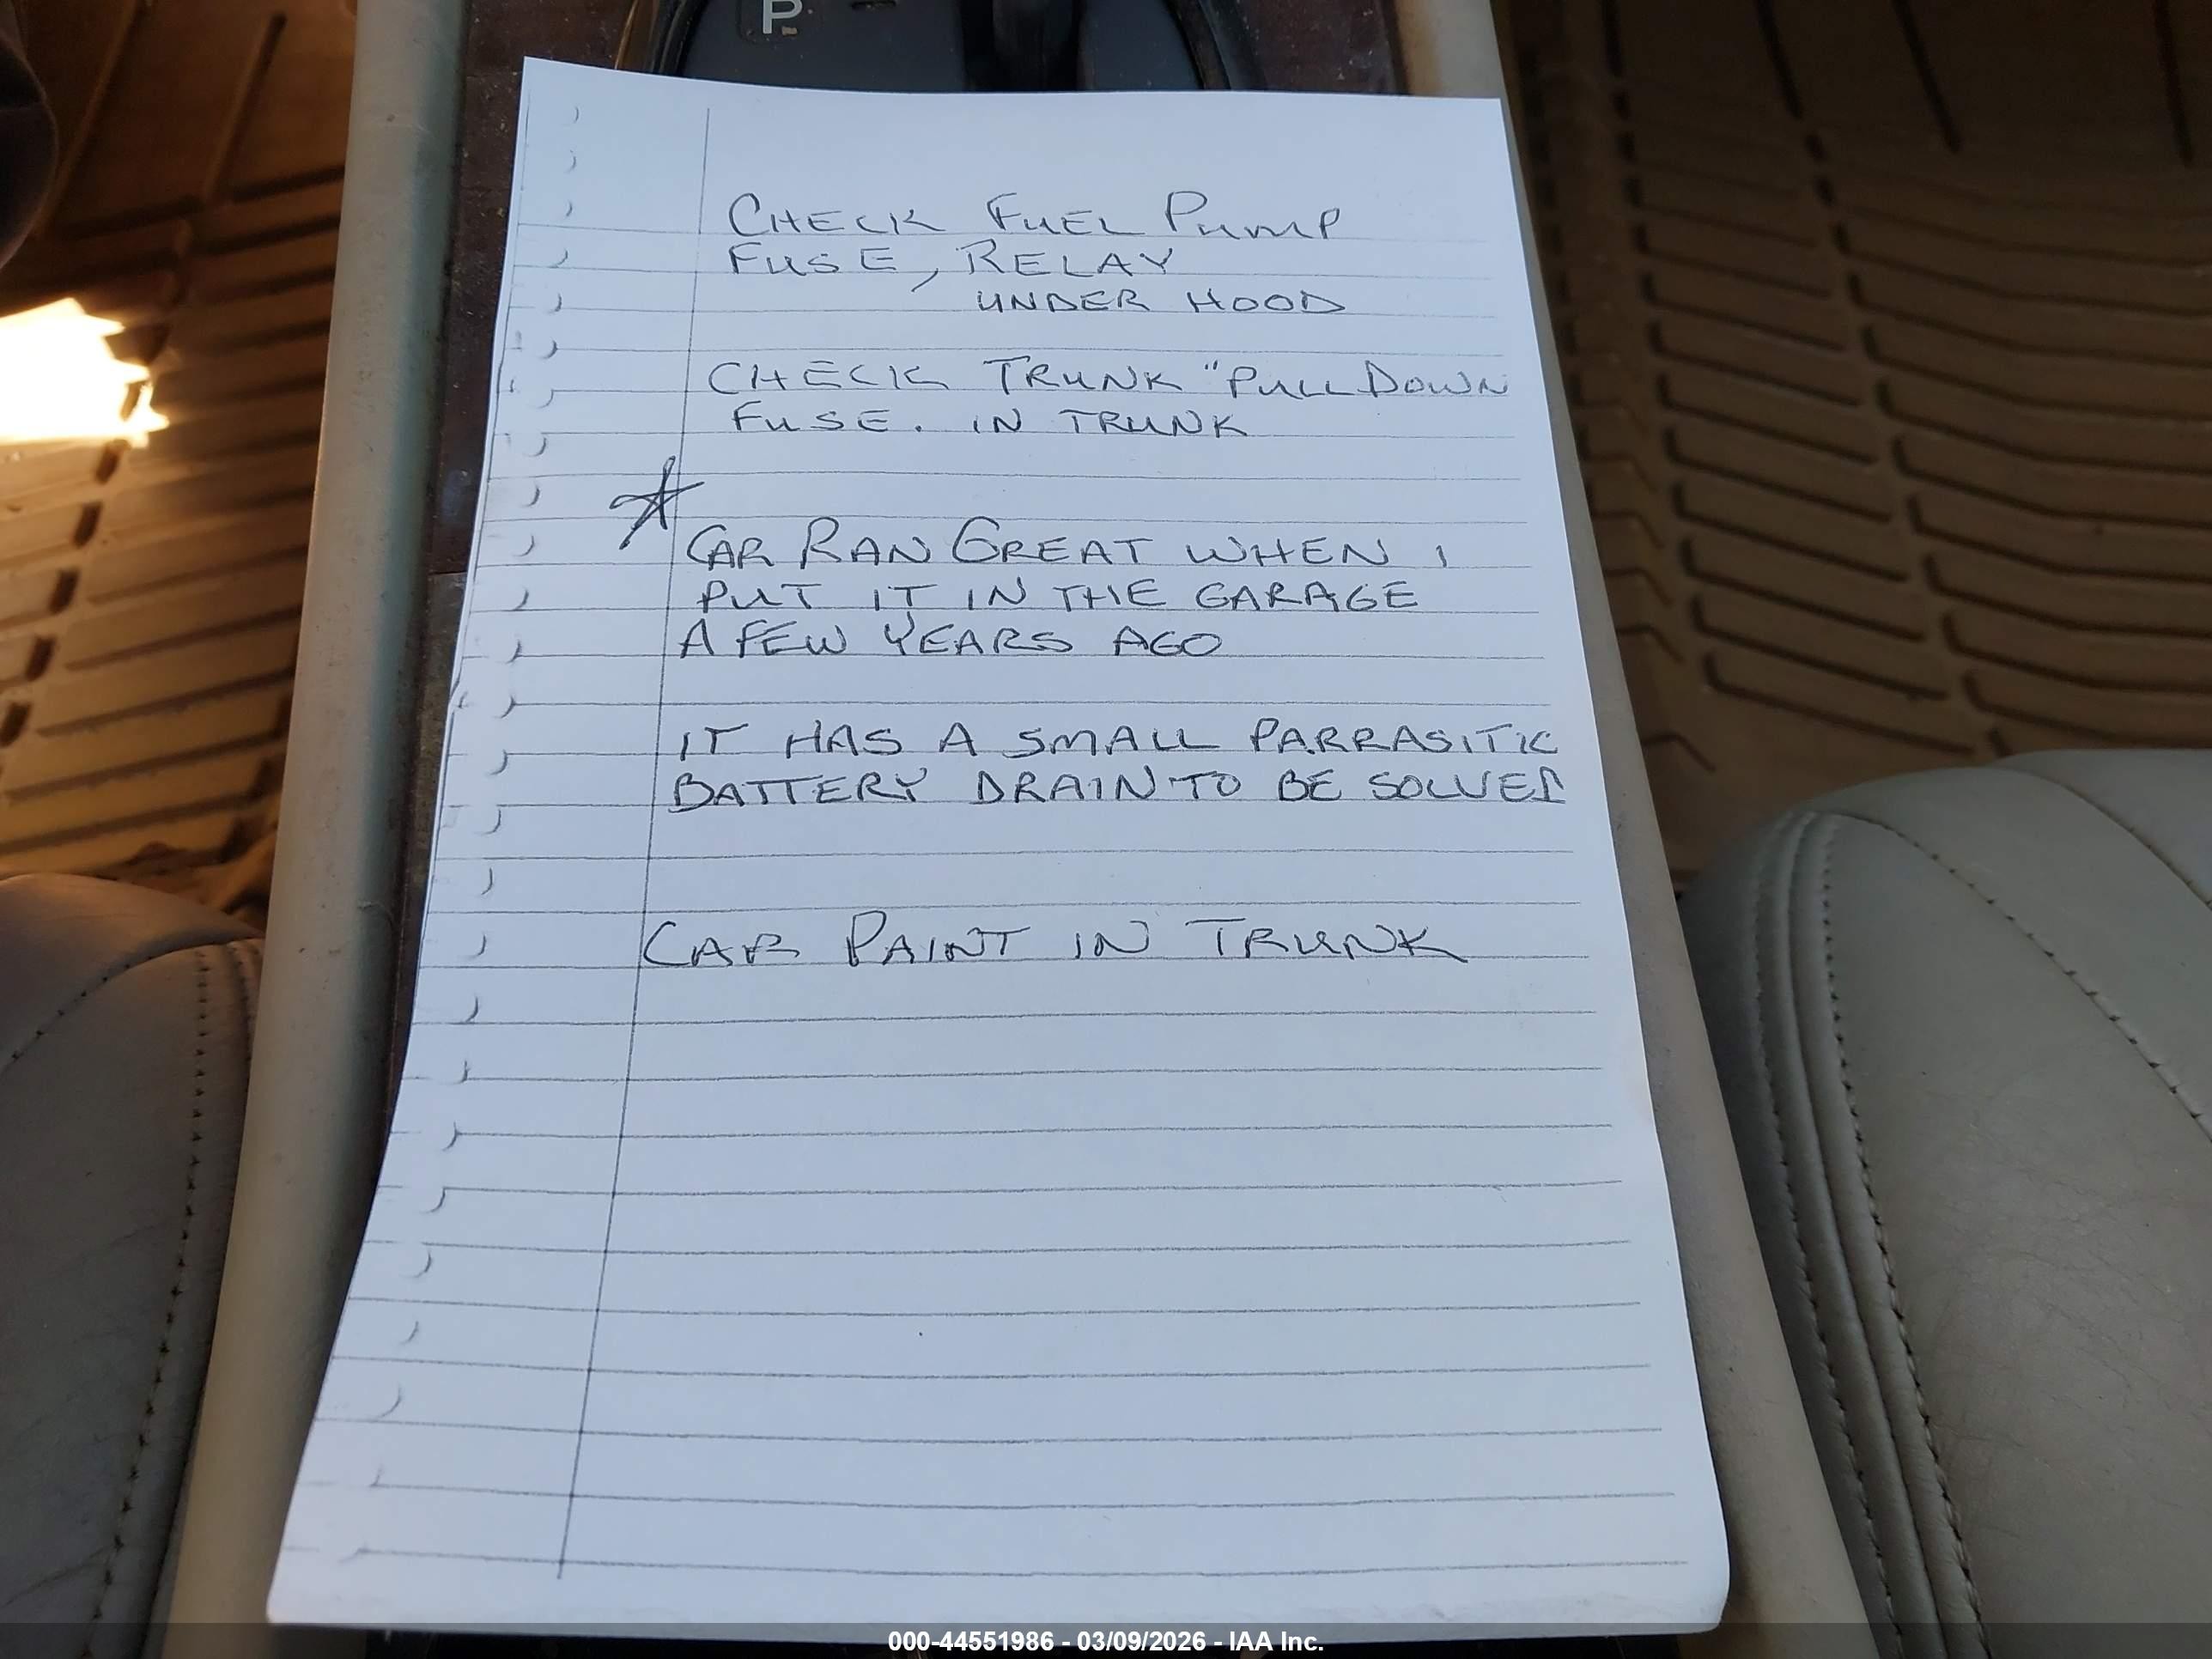 P
CHECK FUEL PUMP
FUSE, RELAY
UNDER HOOD
CHECK TRUNK "PULL DOWN
FUSE. IN TRUNK
CAR RAN GREAT WHEN I
PUT IT IN THE GARAGE
A FEW YEARS AGO
IT HAS A SMALL PARRASITIC
BATTERY DRAIN TO BE SOLVED
CAR PAINT IN TRUNK
000-44551986 - 03/09/2026 - IAA Inc.